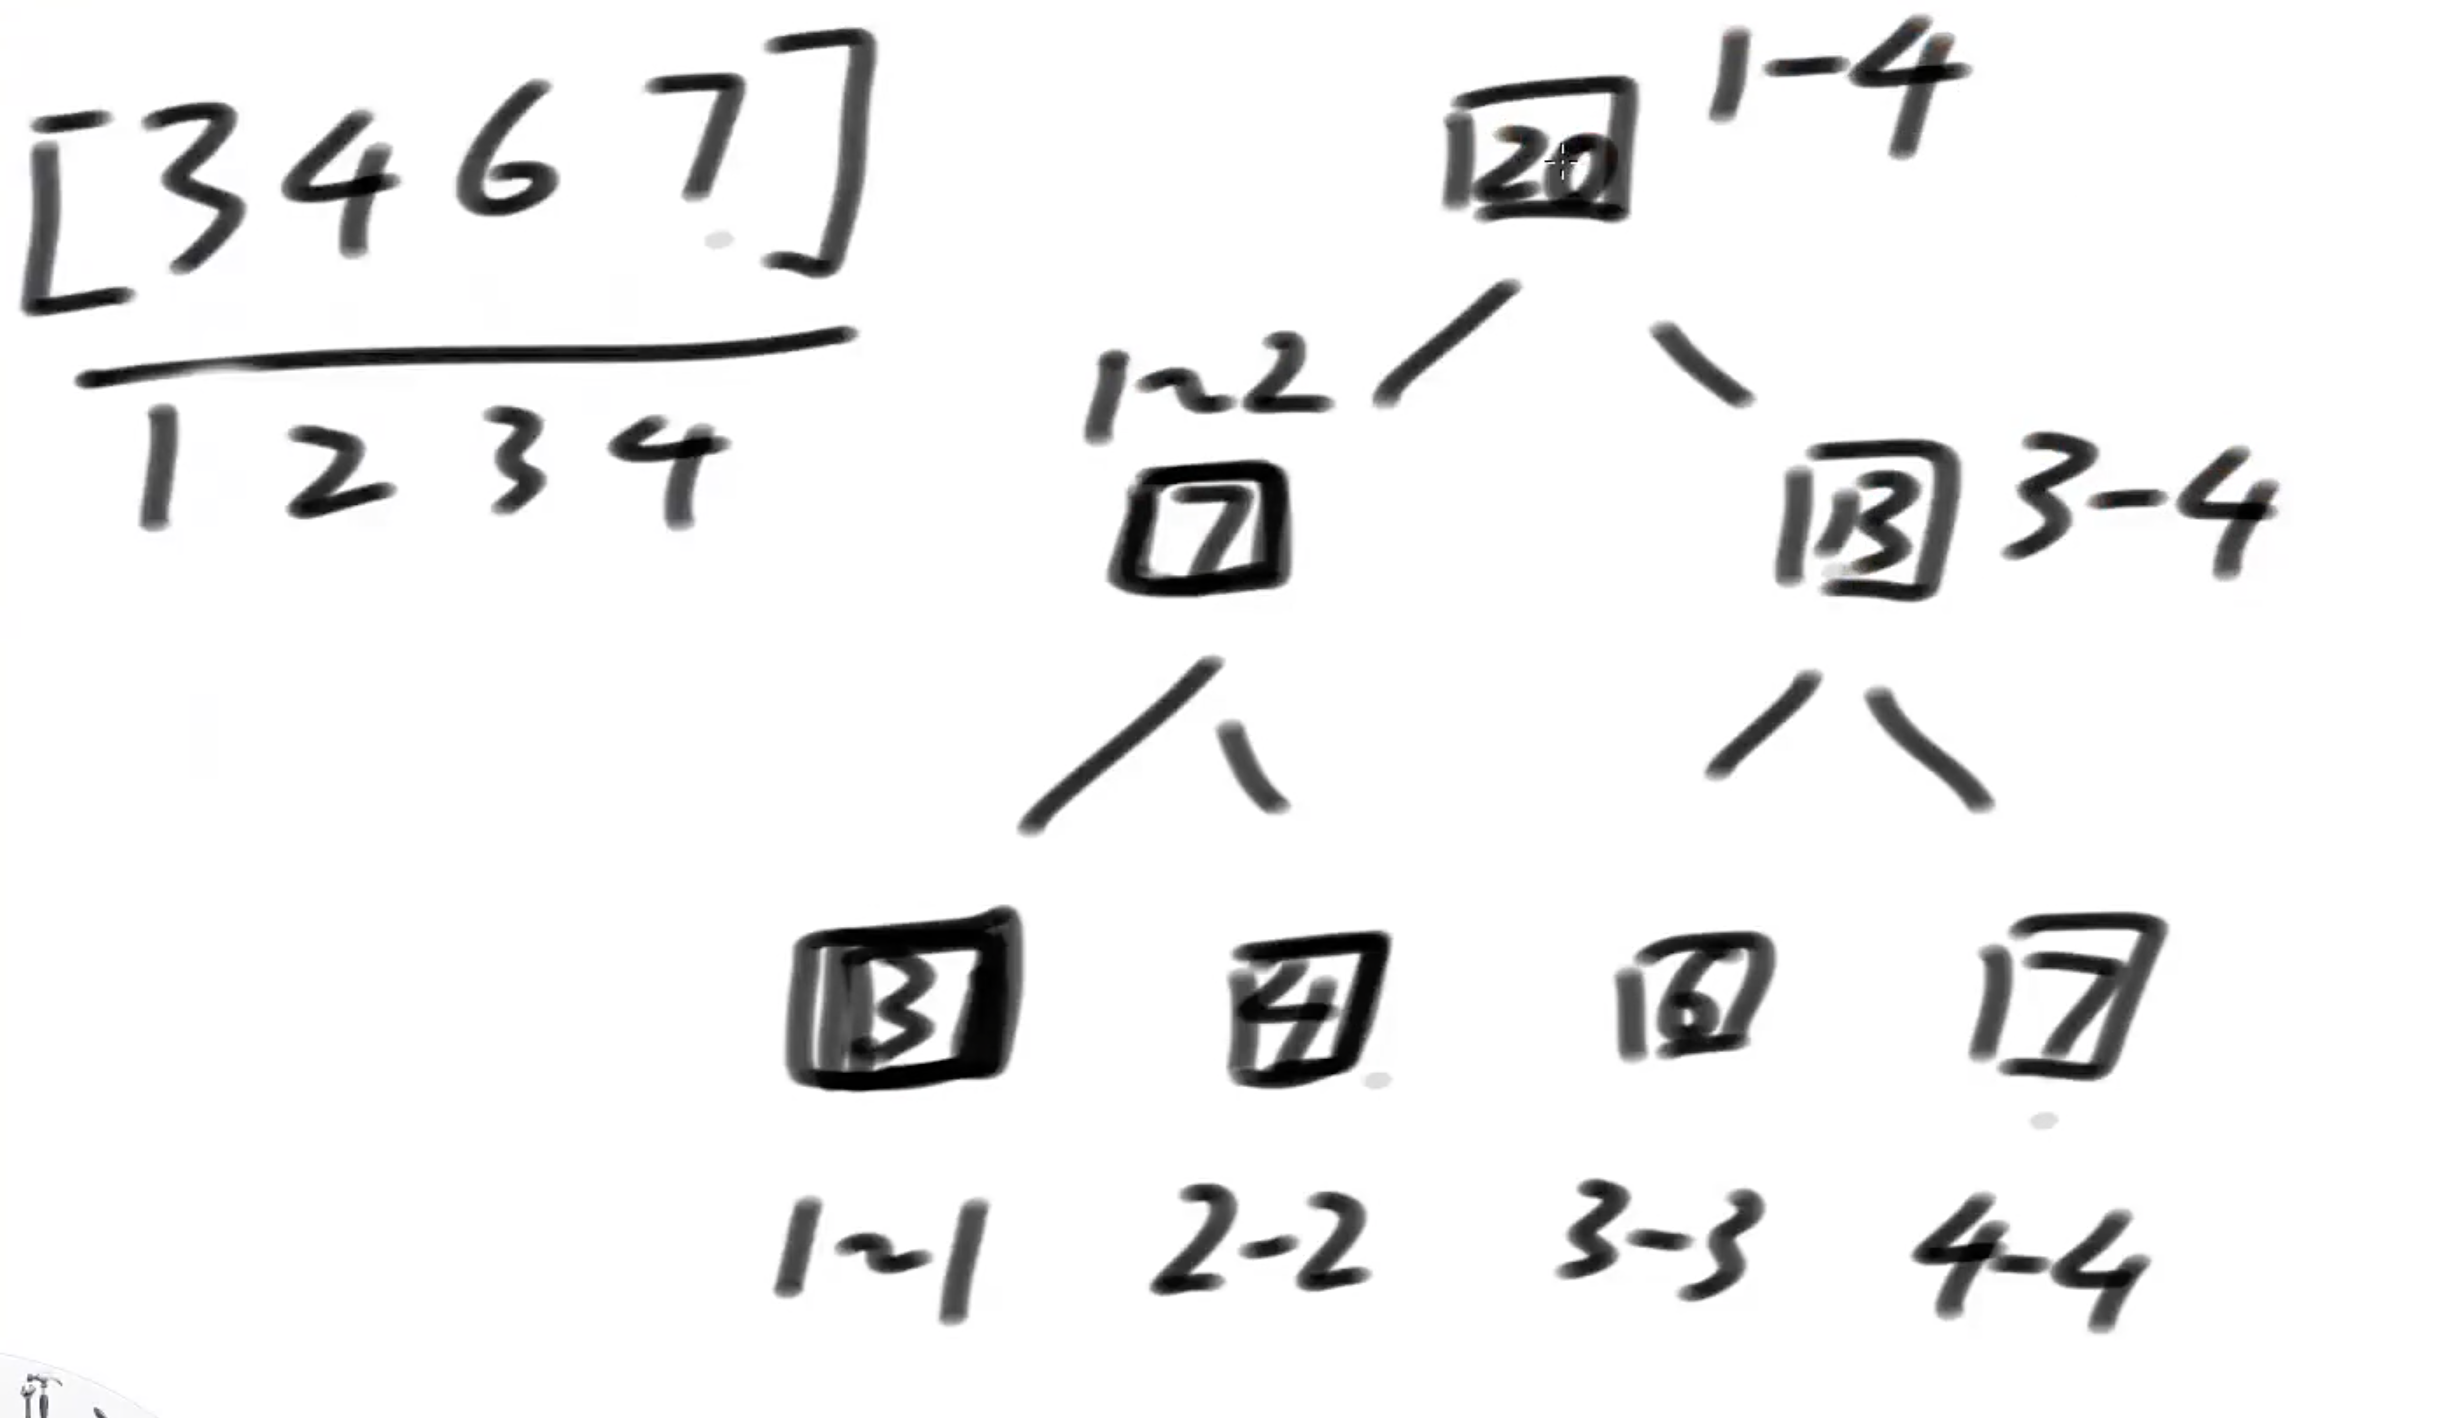 [3 4 6 7]
1 2 3 4
20 1-4
1~2
7
13 3-4
3 4 6 7
1~1 2-2 3-3 4-4